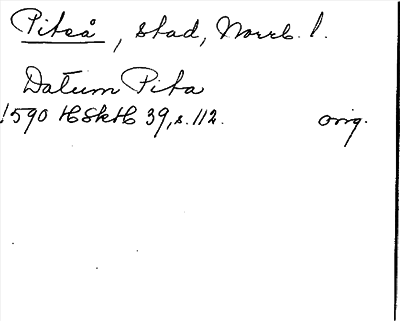 Piteå, stad, Norrb. l.
Datum Pita
1590 HSkH 39, s. 112. orig.